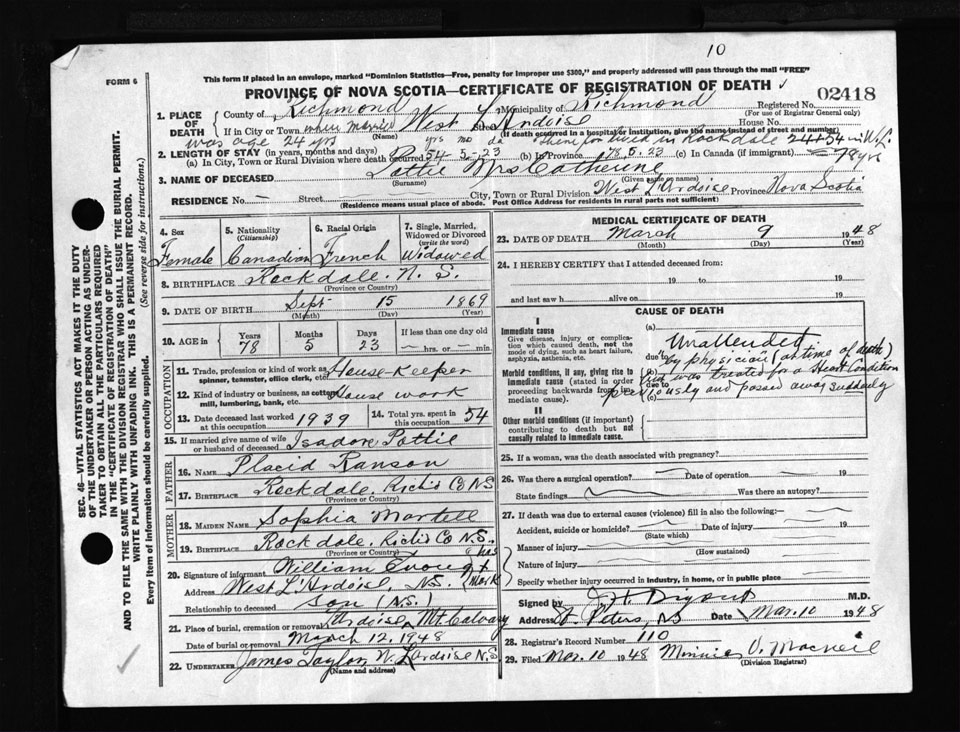 10
FORM 6
This form if placed in an envelope, marked "Dominion Statistics—Free, penalty for improper use $300," and properly addressed will pass through the mail "FREE"
PROVINCE OF NOVA SCOTIA—CERTIFICATE OF REGISTRATION OF DEATH
02418
1. PLACE OF DEATH
County of Richmond Municipality of Richmond Registered No.
(For use of Registrar General only)
If in City or Town West L'Ardoise Street House No.
(Name) (If death occurred in a hospital or institution, give the name instead of street and number)
when married was age 24 yrs
then lived in Rockdale 24 + 54 in W.L.
= 78 yrs
2. LENGTH OF STAY (in years, months and days)
yrs mo da
(a) In City, Town or Rural Division where death occurred 54-5-23 (b) In Province 78.5.23 (c) In Canada (if immigrant)
3. NAME OF DECEASED Pottie Mrs Catherine
(Surname) (Given name or names)
RESIDENCE No. — Street City, Town or Rural Division West L'Ardoise Province Nova Scotia
(Residence means usual place of abode. Post Office Address for residents in rural parts not sufficient)
SEC. 46—VITAL STATISTICS ACT MAKES IT THE DUTY
OF THE UNDERTAKER OR PERSON ACTING AS UNDER-
TAKER TO OBTAIN ALL THE PARTICULARS REQUIRED
IN THE "CERTIFICATE OF REGISTRATION OF DEATH"
AND TO FILE THE SAME WITH THE DIVISION REGISTRAR WHO SHALL ISSUE THE BURIAL PERMIT.
WRITE PLAINLY WITH UNFADING INK. THIS IS A PERMANENT RECORD.
Every item of information should be carefully supplied. (See reverse side for instructions.)
4. Sex Female
5. Nationality (Citizenship) Canadian
6. Racial Origin French
7. Single, Married, Widowed or Divorced (write the word) Widowed
8. BIRTHPLACE Rockdale. N. S.
(Province or Country)
9. DATE OF BIRTH Sept 15 1869
(Month) (Day) (Year)
10. AGE in Years 78 Months 5 Days 23 If less than one day — hrs. or — min.
OCCUPATION
11. Trade, profession or kind of work as spinner, teamster, office clerk, etc. House-Keeper
12. Kind of industry or business, as cotton mill, lumbering, bank, etc. House work
13. Date deceased last worked at this occupation 1939
14. Total yrs. spent in this occupation 54
15. If married give name of wife or husband of deceased Isadore Pottie
FATHER
16. NAME Placid Ranson
17. BIRTHPLACE Rockdale, Rich'd Co NS
(Province or Country)
MOTHER
18. MAIDEN NAME Sophia Martell
19. BIRTHPLACE Rockdale. Rich'd Co N.S.
(Province or Country)
20. Signature of informant William his x mark
Address West L'Ardoise, N.S.
Relationship to deceased son (N.S.)
21. Place of burial, cremation or removal L'Ardoise Mt. Calvary
Date of burial or removal March 12, 1948
22. UNDERTAKER James Taylor W. L'Ardoise N.S
(Name and address)
MEDICAL CERTIFICATE OF DEATH
23. DATE OF DEATH March 9 1948
(Month) (Day) (Year)
24. I HEREBY CERTIFY that I attended deceased from:
19 to 19
and last saw h alive on 19
CAUSE OF DEATH
I
Immediate cause
Give disease, injury or complication which caused death, not the mode of dying, such as heart failure, asphyxia, asthenia, etc.
Morbid conditions, if any, giving rise to immediate cause (stated in order proceeding backwards from immediate cause).
II
Other morbid conditions (if important) contributing to death but not causally related to immediate cause.
(a)
due to
(b)
due to
(c)
Unattended
by physician (at time of death)
but was treated for a Heart Condition
previously and passed away suddenly
25. If a woman, was the death associated with pregnancy?
26. Was there a surgical operation? Date of operation 19
State findings Was there an autopsy?
27. If death was due to external causes (violence) fill in also the following:—
Accident, suicide or homicide? Date of injury 19
(State which)
Manner of injury
(How sustained)
Nature of injury
Specify whether injury occurred in industry, in home, or in public place
Signed by M.D.
Address St. Peters, NS Date Mar. 10 1948
28. Registrar's Record Number 110
29. Filed Mar. 10 1948 Minnie O. MacNeil
(Division Registrar)